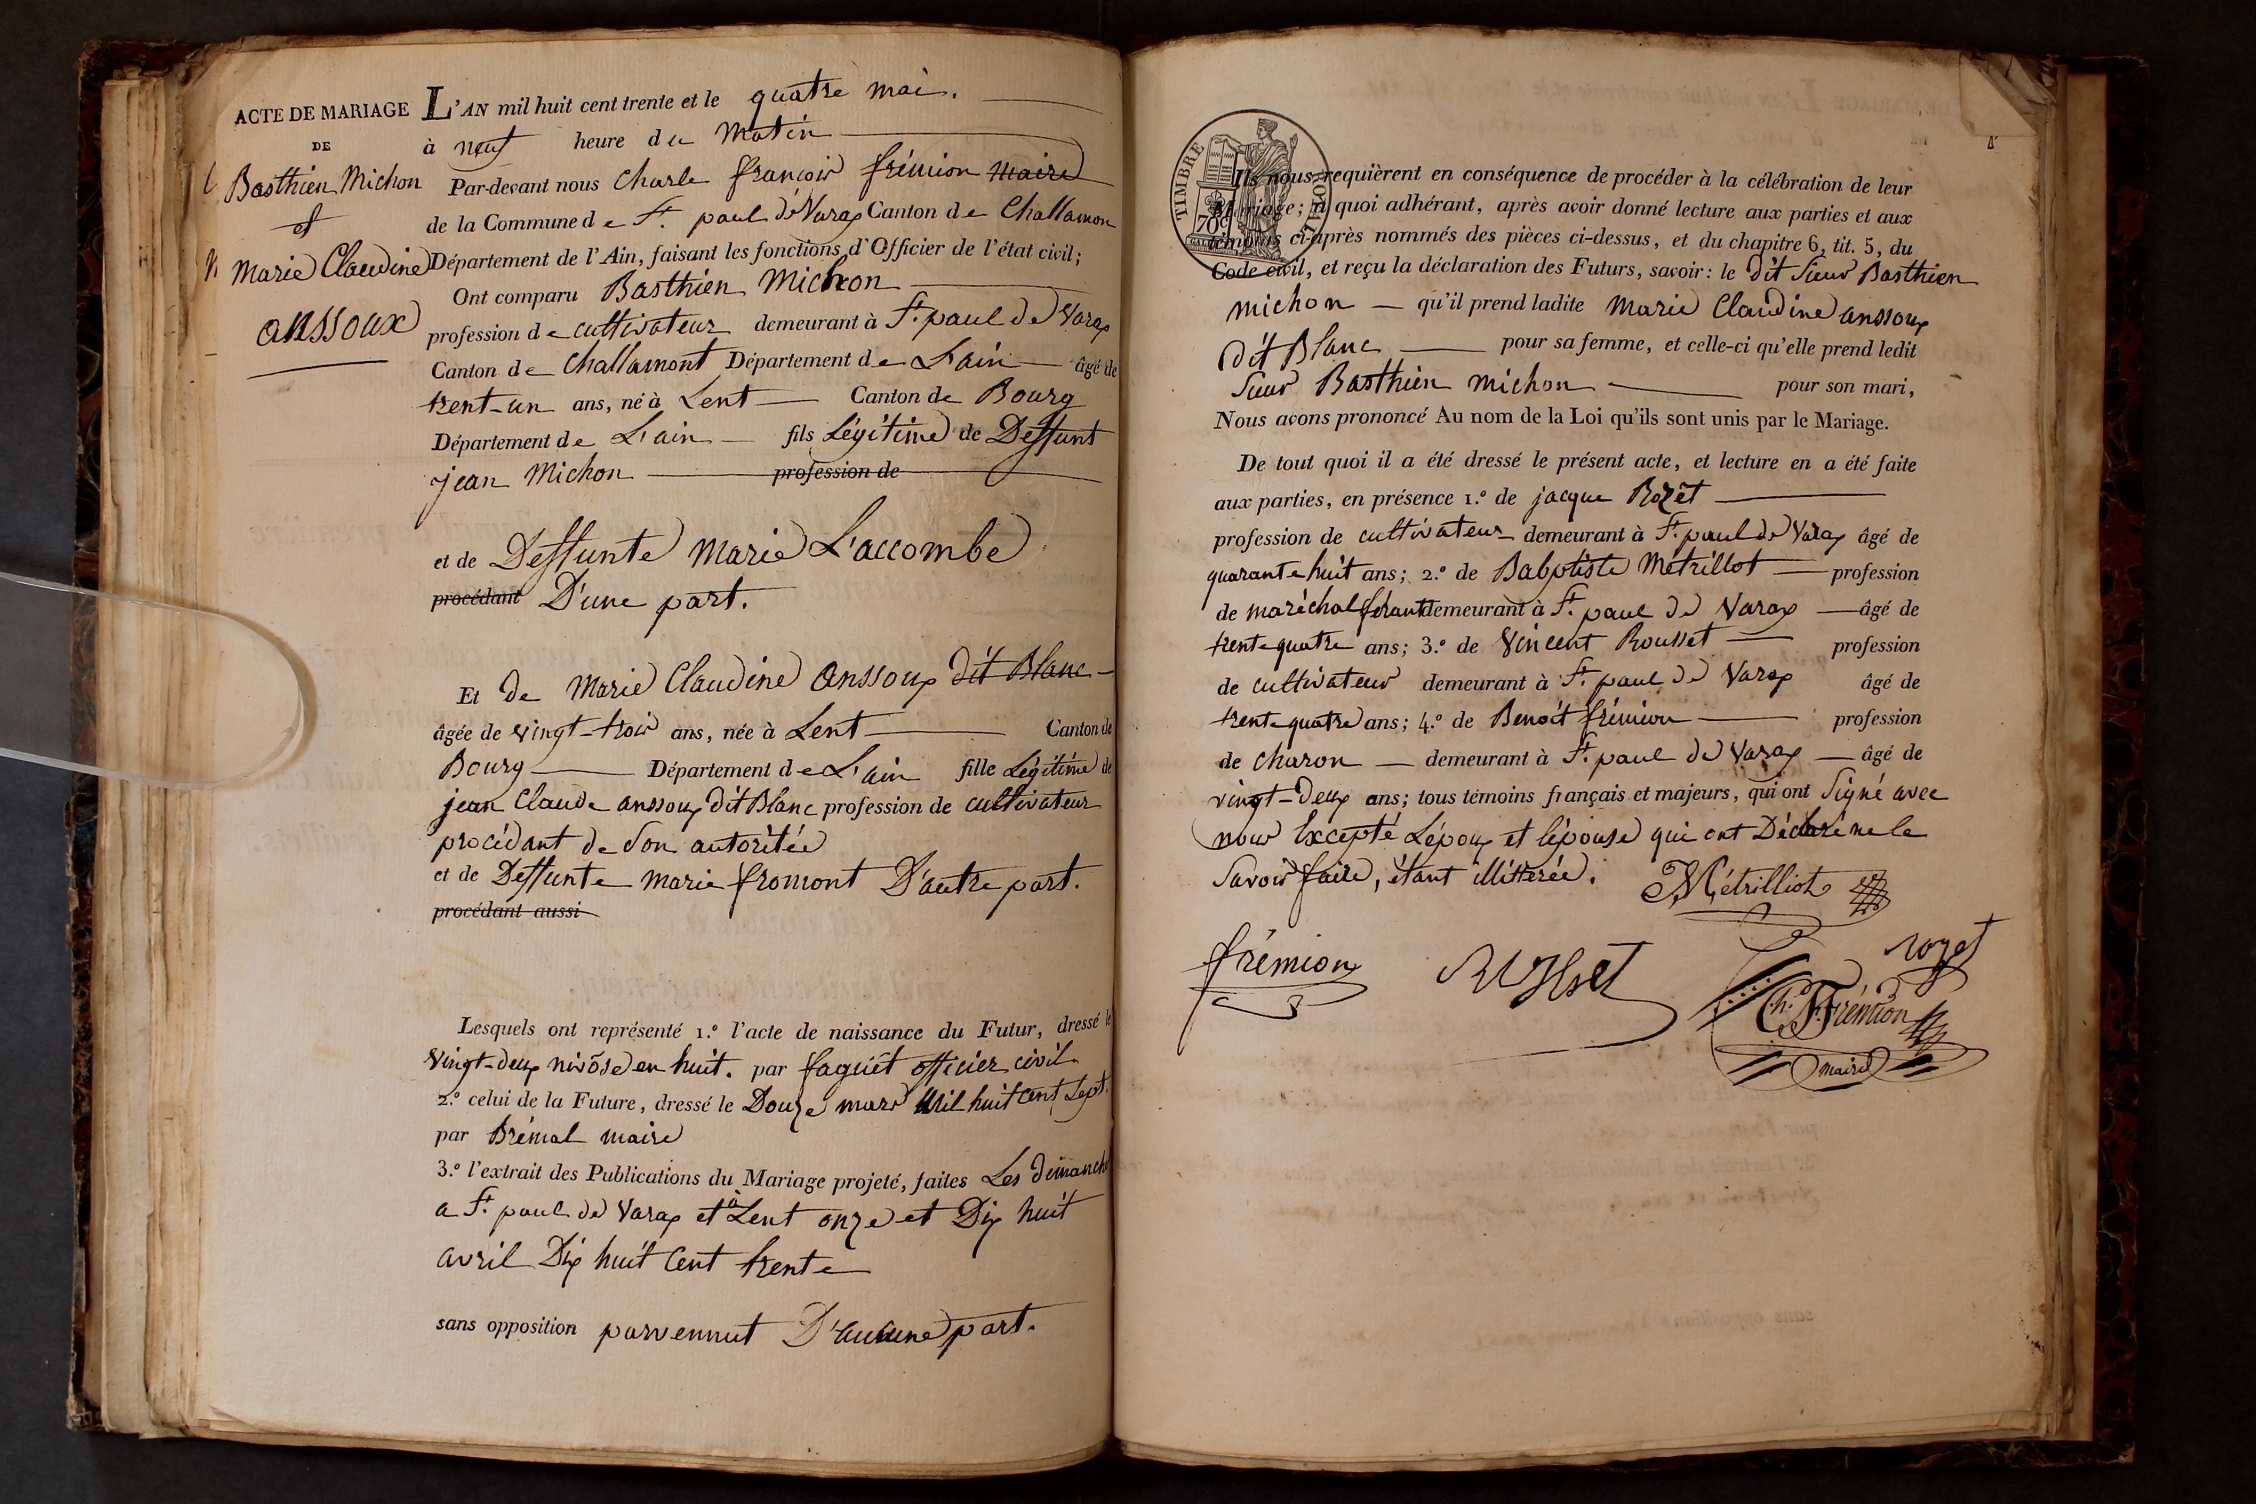 ACTE DE MARIAGE
DE
Basthien Michon
et
Marie Claudine
anssoux
L'AN mil huit cent trente et le quatre mai.
à neuf heure du matin
Par-devant nous Charle françois frémion maire
de la Commune de St. paul de Varax Canton de Challamon
Département de l'Ain, faisant les fonctions d'Officier de l'état civil;
Ont comparu Basthien Michon
profession de cultivateur demeurant à St. paul de Varax
Canton de Challamont Département de L'ain âgé de
trent-un ans, né à Lent Canton de Bourg
Département de L'ain fils Légitime de Deffunt
jean Michon profession de
et de Deffunte Marie L'accombe
procédant D'une part.
Et De Marie Claudine anssoux dit Blanc
âgée de vingt-trois ans, née à Lent Canton de
Bourg Département de L'ain fille Légitime de
jean Claude anssoux dit Blanc profession de cultivateur
procédant de son autoritée
et de Deffunte marie fromont D'autre part.
procédant aussi
Lesquels ont représenté 1.º l'acte de naissance du Futur, dressé le
vingt-deux nivôse en huit. par faguet officier civil
2.º celui de la Future, dressé le Douze mars Mil huit cent sept.
par Brémal maire
3.º l'extrait des Publications du Mariage projeté, faites Les dimanche
a St. paul de Varax et à Lent onze et Dix huit
avril Dix huit Cent trente
sans opposition parvennut D'aucune part.
TIMBRE
70c
Ils nous requièrent en conséquence de procéder à la célébration de leur
Mariage; à quoi adhérant, après avoir donné lecture aux parties et aux
témoins ci-après nommés des pièces ci-dessus, et du chapitre 6, tit. 5, du
Code civil, et reçu la déclaration des Futurs, savoir: le dit Sieur Basthien
michon qu'il prend ladite Marie Claudine anssoux
dit Blanc pour sa femme, et celle-ci qu'elle prend ledit
Sieur Basthien michon pour son mari,
Nous avons prononcé Au nom de la Loi qu'ils sont unis par le Mariage.
De tout quoi il a été dressé le présent acte, et lecture en a été faite
aux parties, en présence 1.º de jacque Rozet
profession de cultivateur demeurant à St. paul de Varax âgé de
quarante huit ans; 2.º de Babptiste Métrillot profession
de maréchal férant demeurant à St. paul de Varax âgé de
trente quatre ans; 3.º de Vincent Rousset profession
de cultivateur demeurant à St. paul de Varax âgé de
trente quatre ans; 4.º de Benoit frémion profession
de charon demeurant à St. paul de Varax âgé de
vingt-deux ans; tous témoins français et majeurs, qui ont Signé avec
nous Excepté L'époux et l'épouse qui ont Déclaré ne le
Savoir faire, étant illitterée.
Métrilliot
frémion
rozet
Ch. F. Frémion
maire